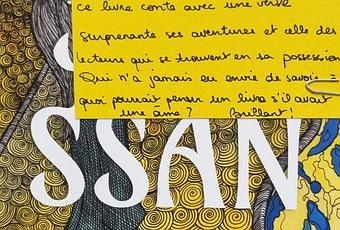 ce livre conte avec une verve
surprenante ses aventures et celle des
lecteurs qui se trouvent en sa possession
Qui n'a jamais eu envie de savoir =
quoi pourrais penser un livre s'il avait
une âme ? Brillant !
SSAN